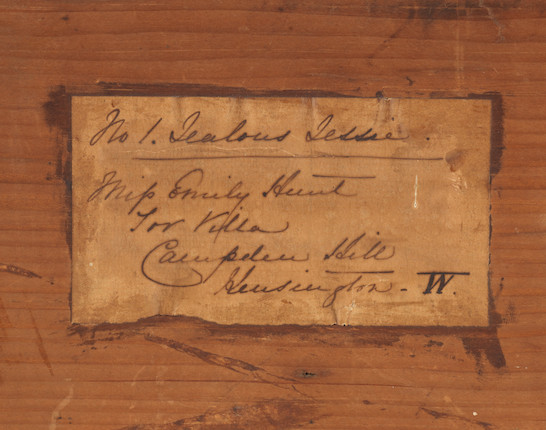 No 1. Jealous Jessie.
Miss Emily Hunt
Tor Villa
Campden Hill
Kensington - W.